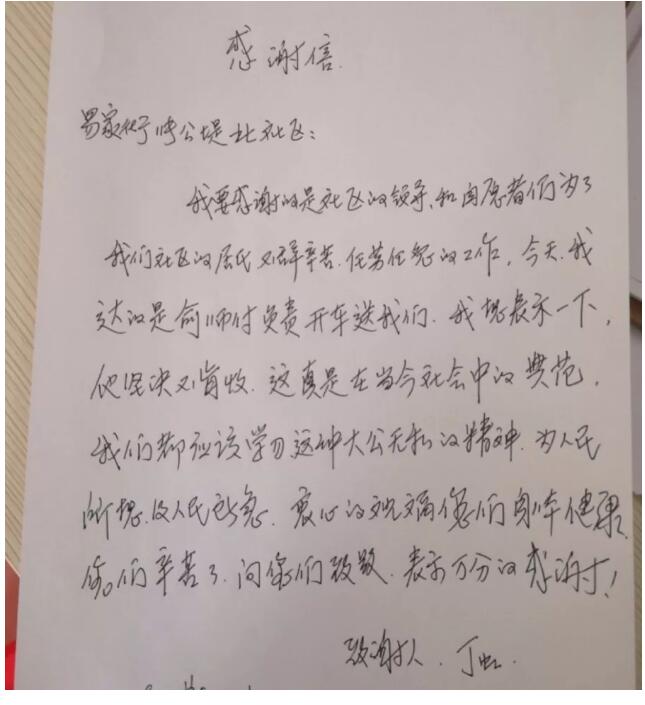 感谢信.
易家街呼公堤北社区:
我要感谢的是社区的领导、和自愿者们为了
我们社区的居民不辞辛苦.任劳任怨的工作,今天.我
达的是俞师付负责开车送我们.我想表示一下,
他坚决不肯收.这真是在当今社会中的典范,
我们都应该学习这种大公无私的精神.为人民
所想.及人民所急.衷心的祝福您们身体健康,
您们辛苦了.向您们致敬.表示万分的感谢!
致谢人.丁